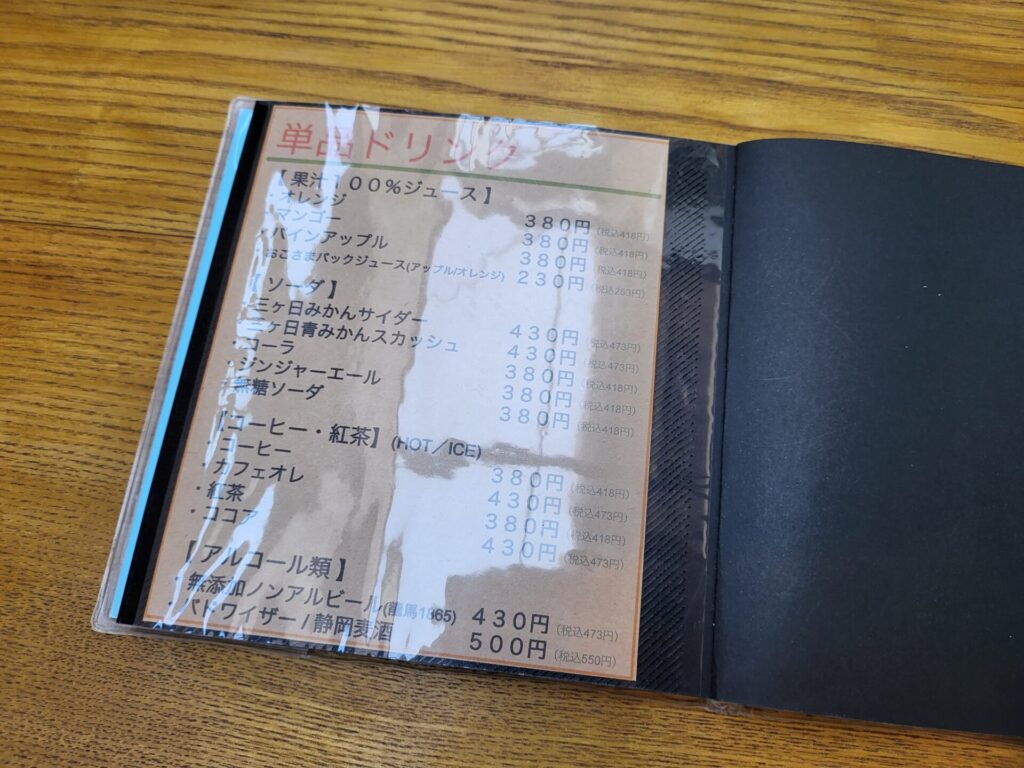 単品ドリンク
【果汁100%ジュース】
・オレンジ 380円(税込418円)
・マンゴー 380円(税込418円)
・パインアップル 380円(税込418円)
おこさまパックジュース(アップル/オレンジ) 230円(税込253円)
【ソーダ】
・三ヶ日みかんサイダー 430円(税込473円)
・三ケ日青みかんスカッシュ 430円(税込473円)
・コーラ 380円(税込418円)
・ジンジャーエール 380円(税込418円)
・無糖ソーダ 380円(税込418円)
【コーヒー・紅茶】(HOT/ICE)
・コーヒー 380円(税込418円)
・カフェオレ 430円(税込473円)
・紅茶 380円(税込418円)
・ココア 430円(税込473円)
【アルコール類】
・無添加ノンアルビール(龍馬1865) 430円(税込473円)
バドワイザー/静岡麦酒 500円(税込550円)